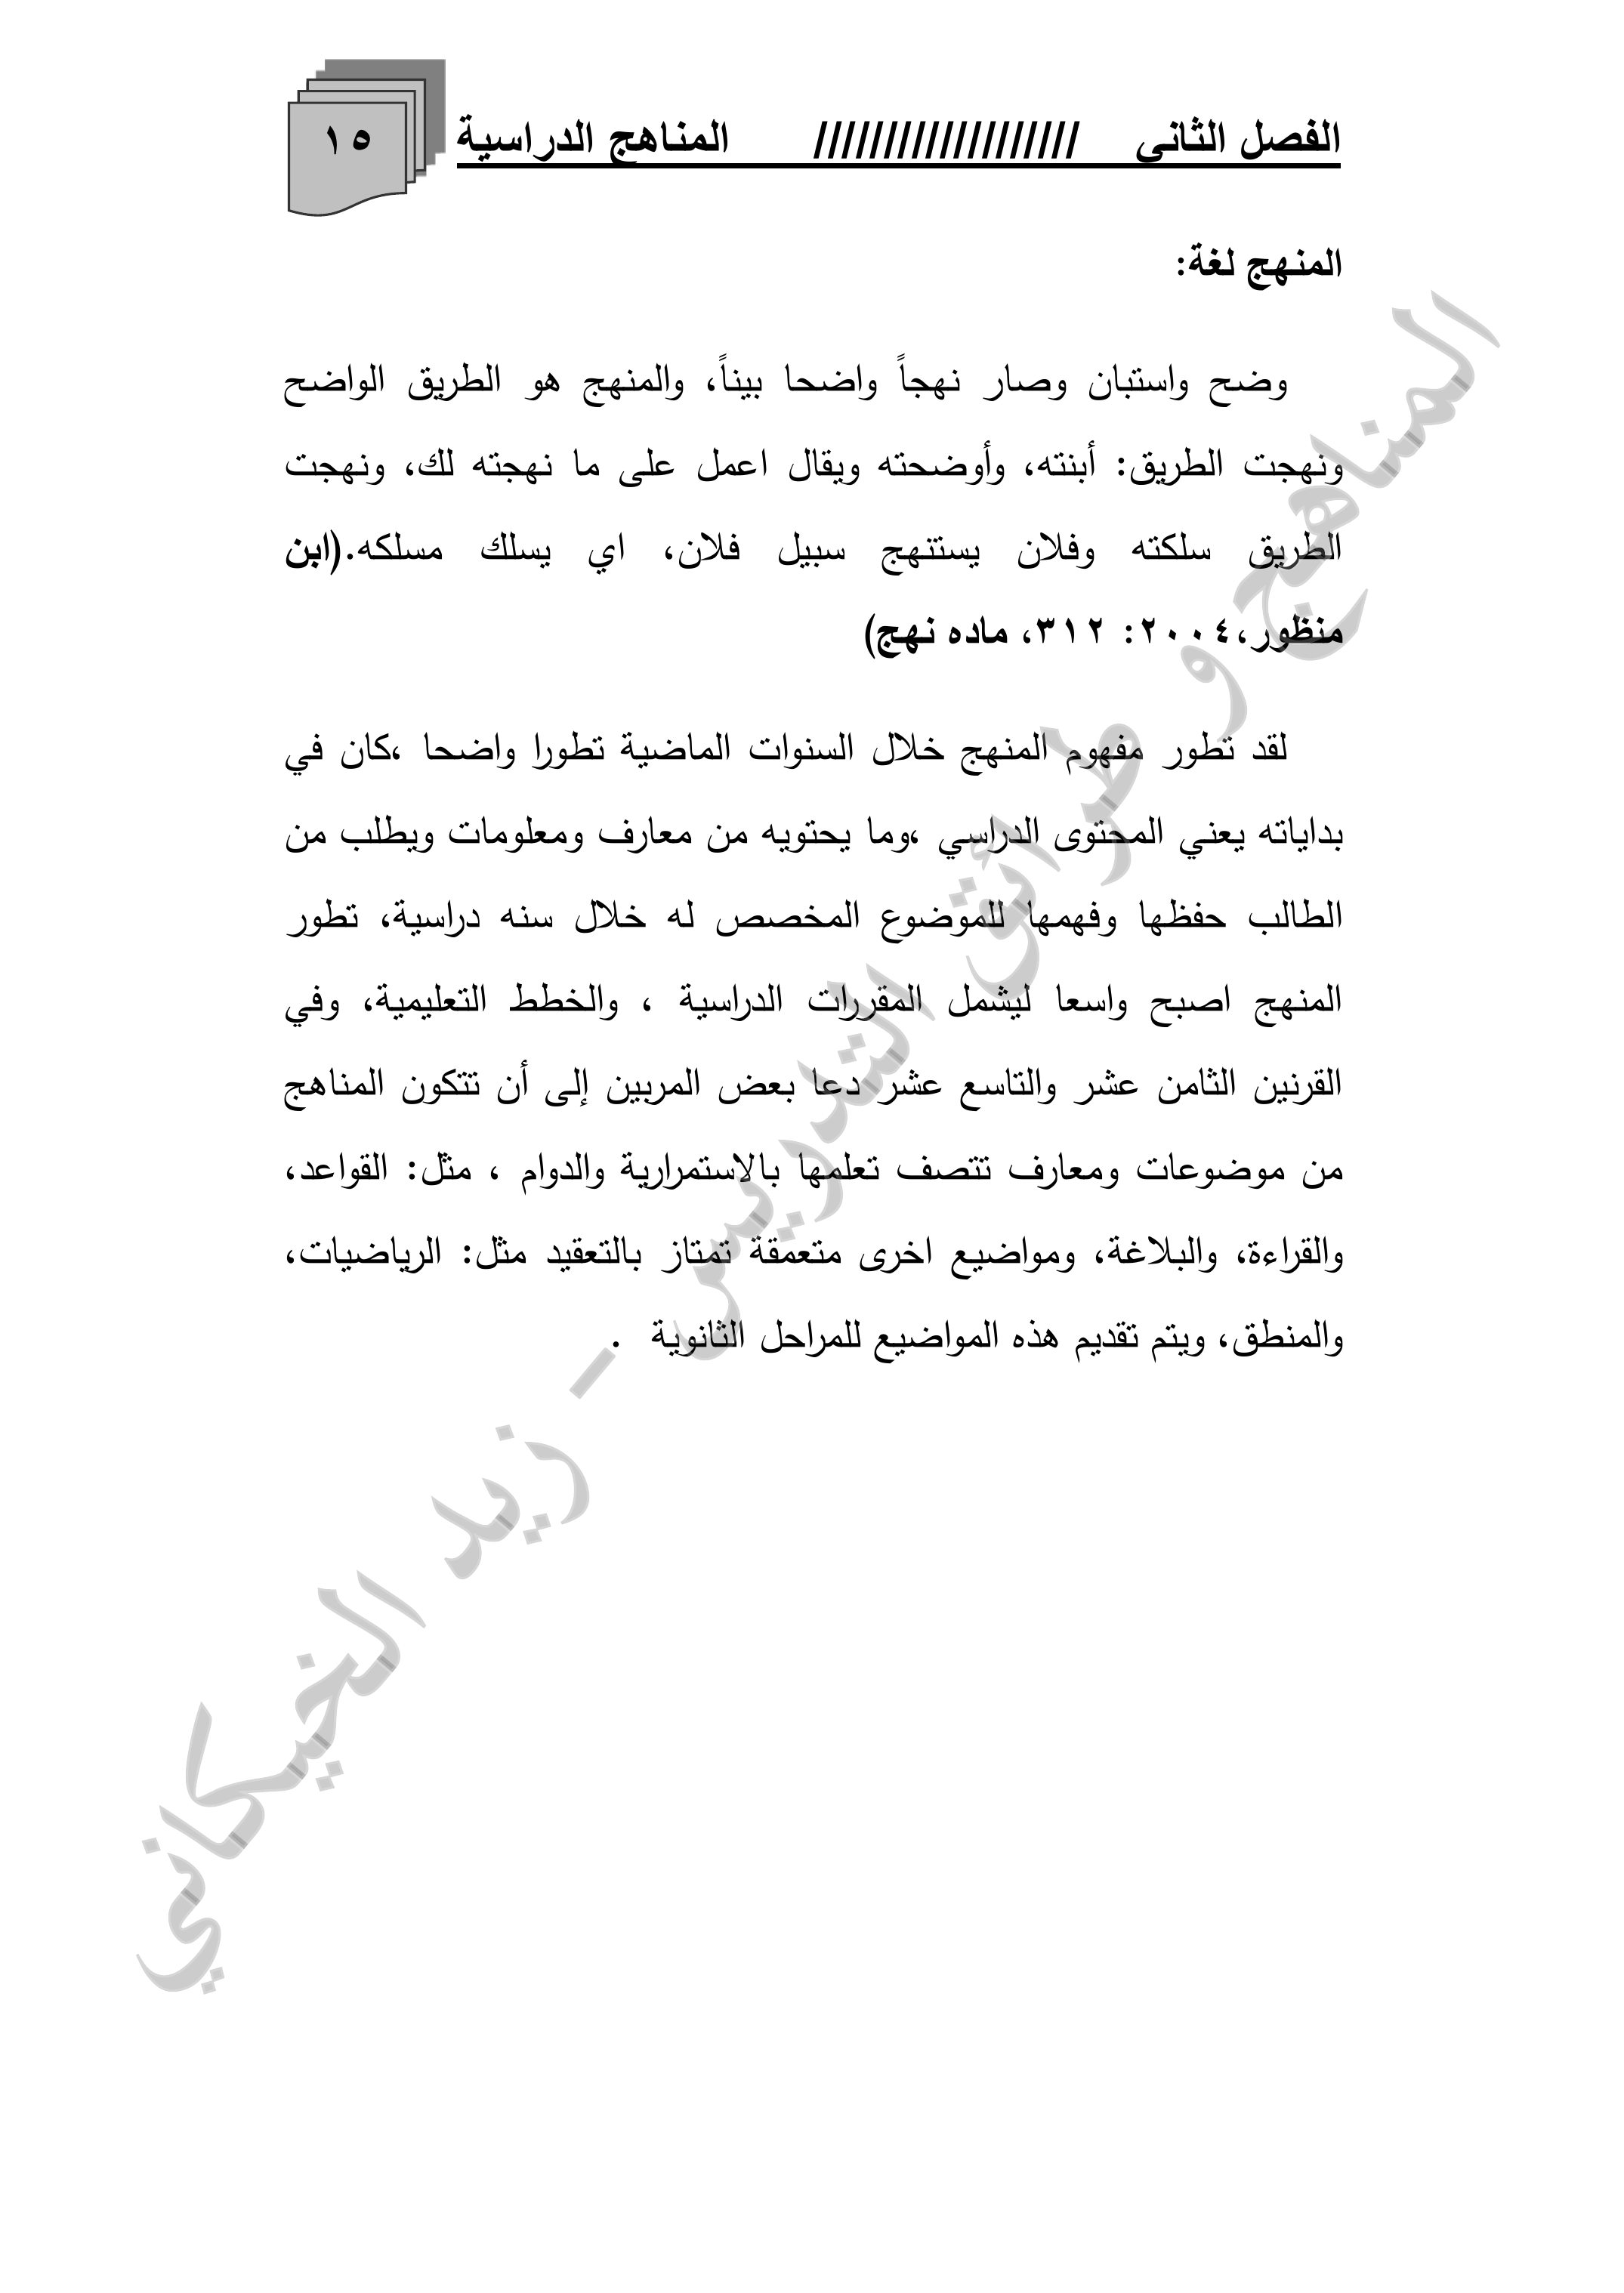 الفصل الثاني /////////////////// المناهج الدراسية ١٥
المنهج لغة:
وضح واستبان وصار نهجاً واضحا بيناً، والمنهج هو الطريق الواضح
ونهجت الطريق: أبنته، وأوضحته ويقال اعمل على ما نهجته لك، ونهجت
الطريق سلكته وفلان يستنهج سبيل فلان، اي يسلك مسلكه.(ابن
منظور،٢٠٠٤: ٣١٢، ماده نهج)
لقد تطور مفهوم المنهج خلال السنوات الماضية تطورا واضحا ،كان في
بداياته يعني المحتوى الدراسي ،وما يحتويه من معارف ومعلومات ويطلب من
الطالب حفظها وفهمها للموضوع المخصص له خلال سنه دراسية، تطور
المنهج اصبح واسعا ليشمل المقررات الدراسية ، والخطط التعليمية، وفي
القرنين الثامن عشر والتاسع عشر دعا بعض المربين إلى أن تتكون المناهج
من موضوعات ومعارف تتصف تعلمها بالاستمرارية والدوام ، مثل: القواعد،
والقراءة، والبلاغة، ومواضيع اخرى متعمقة تمتاز بالتعقيد مثل: الرياضيات،
والمنطق، ويتم تقديم هذه المواضيع للمراحل الثانوية .
المناهج و طرائق التدريس - زيد الخيكاني